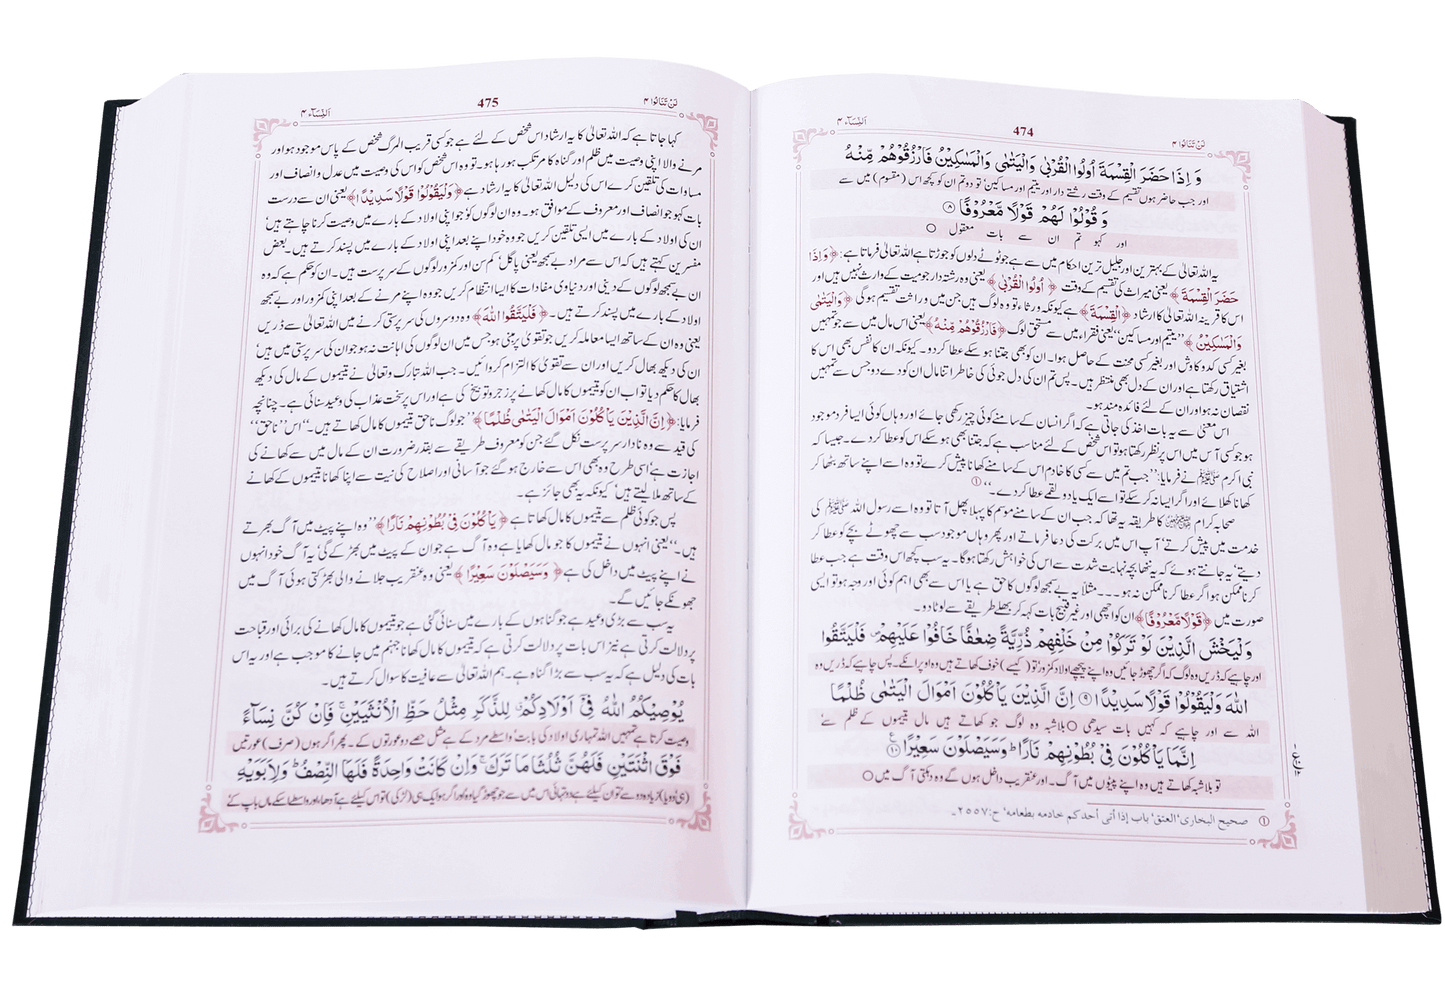 لَنْ تَنَالُوا ۴
474
اَلنِّسَآء ۴
وَ اِذَا حَضَرَ الْقِسْمَةَ اُولُوا الْقُرْبٰى وَالْيَتٰمٰى وَالْمَسٰكِيْنُ فَارْزُقُوْهُمْ مِّنْهُ
اور جب حاضر ہوں تقسیم کے وقت رشتے دار اور یتیم اور مساکین تو دو تم ان کو کچھ اس (مقسوم) میں سے
وَ قُوْلُوْا لَهُمْ قَوْلًا مَّعْرُوْفًا ۸
اور کہو تم ان سے بات معقول
یہ اللہ تعالیٰ کے بہترین اور جلیل ترین احکام میں سے ہے جو ٹوٹے دلوں کو جوڑتا ہے اللہ تعالیٰ فرماتا ہے: ﴿وَ اِذَا
حَضَرَ الْقِسْمَةَ﴾ یعنی میراث کی تقسیم کے وقت ﴿اُولُوا الْقُرْبٰى﴾ یعنی وہ رشتہ دار جو میت کے وارث نہیں ہیں اور
اس کا قرینہ اللہ تعالیٰ کا ارشاد ﴿الْقِسْمَةَ﴾ ہے کیونکہ ورثاء تو وہ لوگ ہیں جن میں وراثت تقسیم ہوگی ﴿وَالْيَتٰمٰى
وَالْمَسٰكِيْنُ﴾ ’’یتیم اور مساکین‘‘ یعنی فقراء میں سے مستحق لوگ ﴿فَارْزُقُوْهُمْ مِّنْهُ﴾ یعنی اس مال میں سے جو تمہیں
بغیر کسی کدوکاوش اور بغیر کسی محنت کے حاصل ہوا۔ ان کو بھی جتنا ہو سکے عطا کر دو۔ کیونکہ ان کا نفس بھی اس کا
اشتیاق رکھتا ہے اور ان کے دل بھی منتظر ہیں۔ پس تم ان کی دل جوئی کی خاطر اتنا مال ان کو دے دو جس سے تمہیں
نقصان نہ ہو اور ان کے لئے فائدہ مند ہو۔
اس معنیٰ سے یہ بات اخذ کی جاتی ہے کہ اگر انسان کے سامنے کوئی چیز رکھی جائے اور وہاں کوئی ایسا فرد موجود
ہو جو کسی آس میں اس پر نظر رکھتا ہو تو اس شخص کے لئے مناسب ہے کہ جتنا بھی ہو سکے اس کو عطا کر دے۔ جیسا کہ
نبی اکرم ﷺ نے فرمایا: ’’جب تم میں سے کسی کا خادم اس کے سامنے کھانا پیش کرے تو وہ اسے اپنے ساتھ بٹھا کر
کھانا کھلائے اور اگر ایسا نہ کر سکے تو اسے ایک یا دو لقمے عطا کر دے۔‘‘ ①
صحابہ کرام کا طریقہ یہ تھا کہ جب ان کے سامنے موسم کا پہلا پھل آتا تو وہ اسے رسول اللہ ﷺ کی
خدمت میں پیش کرتے‘ آپ اس میں برکت کی دعا فرماتے اور پھر وہاں موجود سب سے چھوٹے بچے کو عطا کر
دیتے‘ یہ جانتے ہوئے کہ یہ ننھا بچہ نہایت شدت سے اس کی خواہش رکھتا ہوگا۔ یہ سب کچھ اس وقت ہے جب عطا
کرنا ممکن ہو اگر عطا کرنا ممکن نہ ہو۔۔۔ مثلاً یہ بے سمجھ لوگوں کا حق ہے یا اس سے بھی اہم کوئی اور وجہ ہو تو ایسی
صورت میں ﴿قَوْلًا مَّعْرُوْفًا﴾ ان کو اچھی اور غیر قبیح بات کہہ کر بھلے طریقے سے لوٹا دو۔
وَلْيَخْشَ الَّذِيْنَ لَوْ تَرَكُوْا مِنْ خَلْفِهِمْ ذُرِّيَّةً ضِعٰفًا خَافُوْا عَلَيْهِمْ ۪ فَلْيَتَّقُوا
اور چاہیے کہ ڈریں وہ لوگ کہ اگر چھوڑ جائیں وہ اپنے پیچھے اولاد کمزور‘ تو (کیسے) خوف کھاتے ہیں وہ اوپر انکے۔ پس چاہیے کہ ڈریں وہ
اللّٰهَ وَلْيَقُوْلُوْا قَوْلًا سَدِيْدًا ۹ اِنَّ الَّذِيْنَ يَاْكُلُوْنَ اَمْوَالَ الْيَتٰمٰى ظُلْمًا
اللہ سے اور چاہیے کہ کہیں بات سیدھی بلاشبہ وہ لوگ جو کھاتے ہیں مال یتیموں کے ظلم سے‘
اِنَّمَا يَاْكُلُوْنَ فِيْ بُطُوْنِهِمْ نَارًا ؕ وَسَيَصْلَوْنَ سَعِيْرًا ۱۰
تو بلاشبہ کھاتے ہیں وہ اپنے پیٹوں میں آگ۔ اور عنقریب داخل ہوں گے وہ دہکتی آگ میں
① صحيح البخاري‘ العتق‘ باب إذا أتى أحدكم خادمه بطعامه‘ ح: ۲۵۵۷۔
لَنْ تَنَالُوا ۴
475
اَلنِّسَآء ۴
کہا جاتا ہے کہ اللہ تعالیٰ کا یہ ارشاد اس شخص کے لئے ہے جو کسی قریب المرگ شخص کے پاس موجود ہو اور
مرنے والا اپنی وصیت میں ظلم اور گناہ کا مرتکب ہو رہا ہو۔ تو وہ اس شخص کو اس کی وصیت میں عدل و انصاف اور
مساوات کی تلقین کرے اس کی دلیل اللہ تعالیٰ کا یہ ارشاد ہے ﴿وَلْيَقُوْلُوْا قَوْلًا سَدِيْدًا﴾ یعنی ان سے درست
بات کہو جو انصاف اور معروف کے موافق ہو۔ وہ ان لوگوں کو جو اپنی اولاد کے بارے میں وصیت کرنا چاہتے ہیں‘
ان کی اولاد کے بارے میں ایسی تلقین کریں جو وہ خود اپنے بعد اپنی اولاد کے بارے میں پسند کرتے ہیں۔ بعض
مفسرین کہتے ہیں کہ اس سے مراد بے سمجھ یعنی پاگل‘ کم سن اور کمزور لوگوں کے سرپرست ہیں۔ ان کو حکم ہے کہ وہ
ان بے سمجھ لوگوں کے دینی اور دنیاوی مفادات کا ایسا انتظام کریں جو وہ اپنے مرنے کے بعد اپنی کمزور اور بے سمجھ
اولاد کے بارے میں پسند کرتے ہیں۔ ﴿فَلْيَتَّقُوا اللّٰهَ﴾ وہ دوسروں کی سرپرستی کرنے میں اللہ تعالیٰ سے ڈریں
یعنی وہ ان کے ساتھ ایسا معاملہ کریں جو تقویٰ پر مبنی ہو جس میں ان لوگوں کی اہانت نہ ہو جو ان کی سرپرستی میں ہیں‘
ان کی دیکھ بھال کریں اور ان سے تقویٰ کا التزام کروائیں۔ جب اللہ تبارک و تعالیٰ نے یتیموں کے مال کی دیکھ
بھال کا حکم دیا تو اب ان کو یتیموں کا مال کھانے پر زجر و توبیخ کی ہے اور اس پر سخت عذاب کی وعید سنائی ہے۔ چنانچہ
فرمایا: ﴿اِنَّ الَّذِيْنَ يَاْكُلُوْنَ اَمْوَالَ الْيَتٰمٰى ظُلْمًا﴾ ’’جو لوگ ناحق یتیموں کا مال کھاتے ہیں۔‘‘ اس ’’ناحق‘‘
کی قید سے وہ نادار سرپرست نکل گئے جن کو معروف طریقے سے بقدر ضرورت ان کے مال میں سے کھانے کی
اجازت ہے‘ اسی طرح وہ بھی اس سے خارج ہو گئے جو آسانی اور اصلاح کی نیت سے اپنا کھانا یتیموں کے کھانے
کے ساتھ ملا لیتے ہیں‘ کیونکہ یہ بھی جائز ہے۔
پس جو کوئی ظلم سے یتیموں کا مال کھاتا ہے ﴿يَاْكُلُوْنَ فِيْ بُطُوْنِهِمْ نَارًا﴾ ’’وہ اپنے پیٹ میں آگ بھرتے
ہیں۔‘‘ یعنی انہوں نے یتیموں کا جو مال کھایا ہے وہ آگ ہے جو ان کے پیٹ میں بھڑکے گی‘ یہ آگ خود انہوں
نے اپنے پیٹ میں داخل کی ہے ﴿وَسَيَصْلَوْنَ سَعِيْرًا﴾ یعنی وہ عنقریب جلانے والی بھڑکتی ہوئی آگ میں
جھونکے جائیں گے۔
یہ سب سے بڑی وعید ہے جو گناہوں کے بارے میں سنائی گئی ہے جو یتیموں کا مال کھانے کی برائی اور قباحت
پر دلالت کرتی ہے نیز اس بات پر دلالت کرتی ہے کہ یتیموں کا مال کھانا جہنم میں جانے کا موجب ہے اور یہ اس
بات کی دلیل ہے کہ یہ سب سے بڑا گناہ ہے۔ ہم اللہ تعالیٰ سے عافیت کا سوال کرتے ہیں۔
يُوْصِيْكُمُ اللّٰهُ فِيْٓ اَوْلَادِكُمْ ۗ لِلذَّكَرِ مِثْلُ حَظِّ الْاُنْثَيَيْنِ ۚ فَاِنْ كُنَّ نِسَآءً
وصیت کرتا ہے تمہیں اللہ تمہاری اولاد کی بابت‘ واسطے مرد کے ہے مثل حصے دو عورتوں کے۔ پھر اگر ہوں (صرف) عورتیں
فَوْقَ اثْنَتَيْنِ فَلَهُنَّ ثُلُثَا مَا تَرَكَ ۚ وَاِنْ كَانَتْ وَاحِدَةً فَلَهَا النِّصْفُ ؕ وَلِاَبَوَيْهِ
(ہی‘ دو یا) زیادہ دو سے تو ان کیلئے ہے دو تہائی اس میں سے جو چھوڑ گیا وہ اور اگر ہو ایک ہی (لڑکی) تو اس کیلئے ہے آدھا‘ اور واسطے اسکے ماں باپ کے